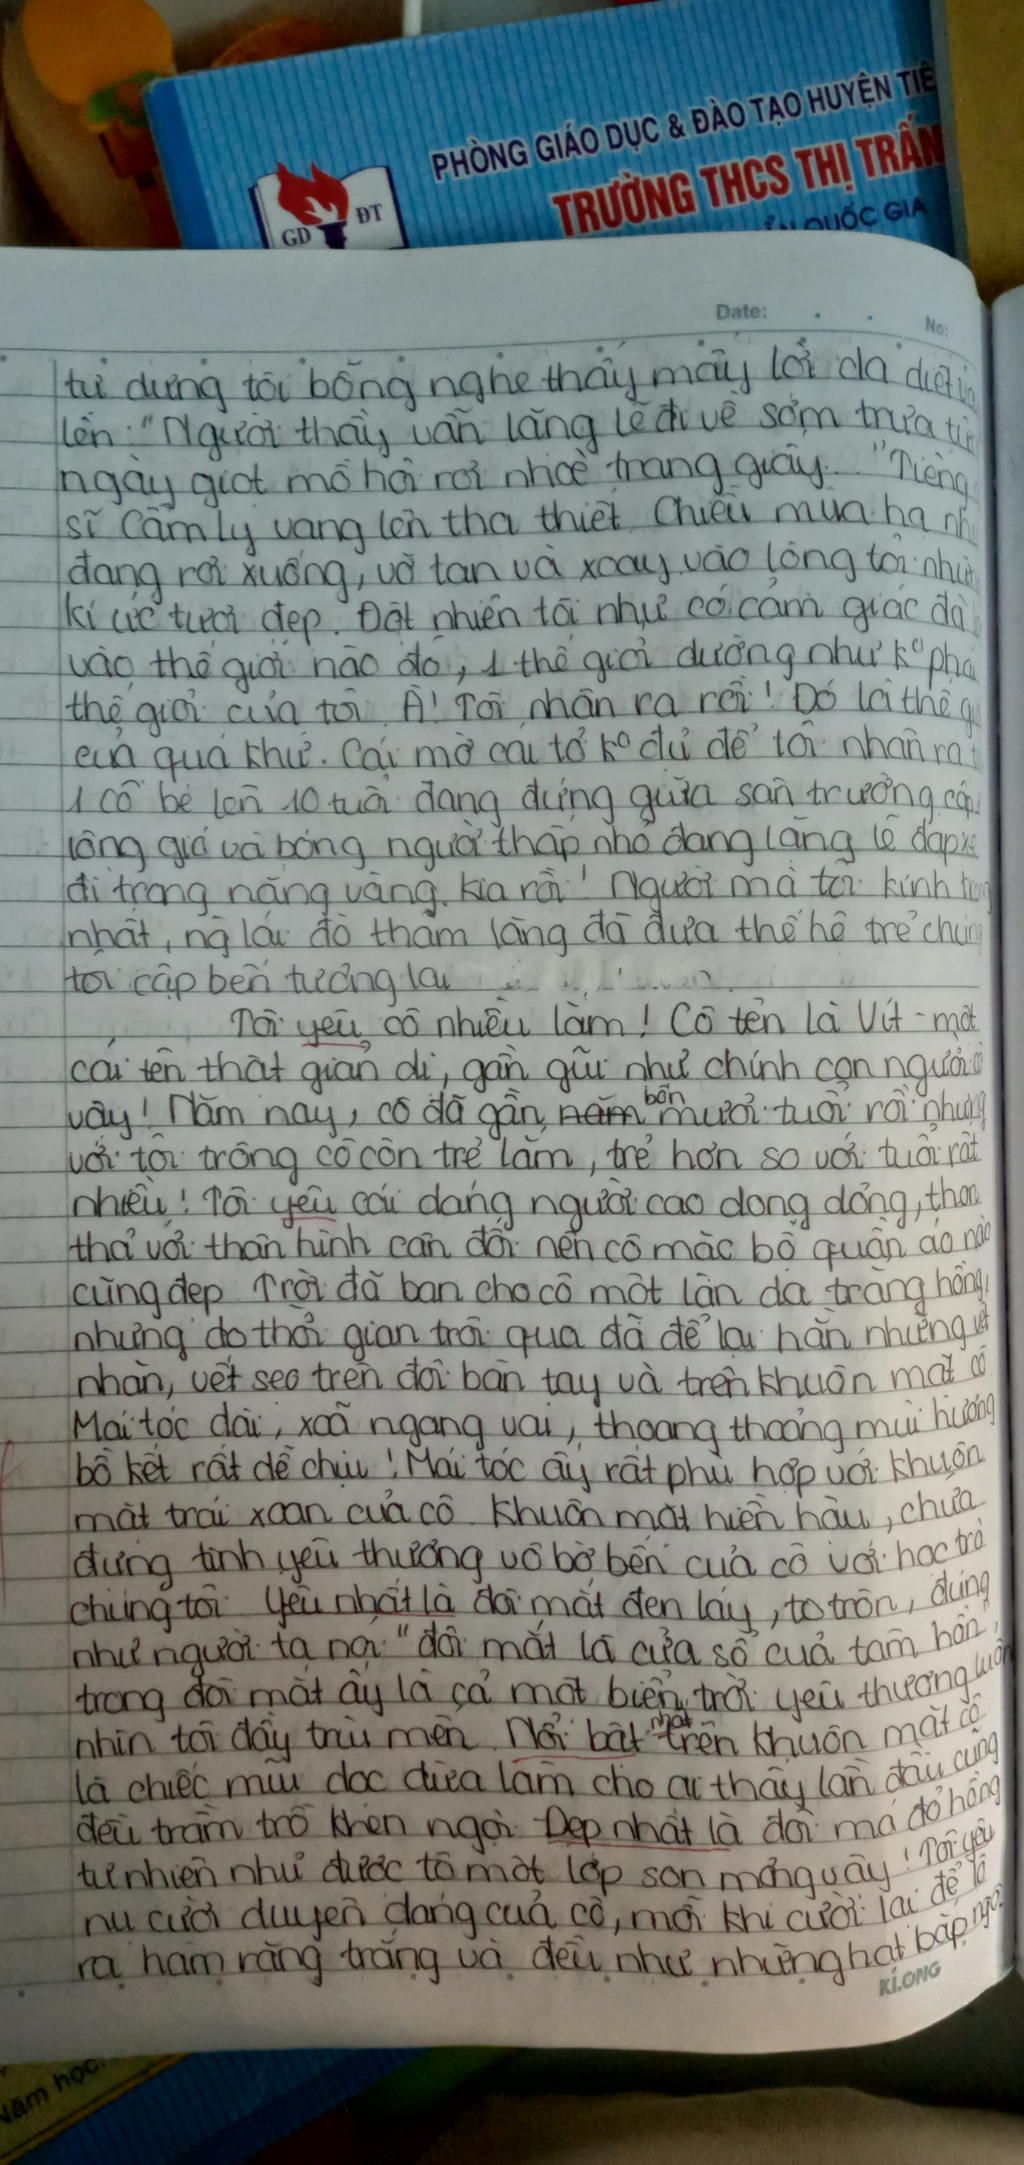 PHÒNG GIÁO DỤC & ĐÀO TẠO HUYỆN TIÊ
TRƯỜNG THCS THỊ TRẤN
QUỐC GIA
GD ĐT
Date:
No:
tự dưng tôi bỗng nghe thấy mấy lời da diết
lên: "Người thầy vẫn lặng lẽ đi về sớm trưa từ
ngày giọt mồ hôi rơi nhoè trang giấy..." Tiếng
sĩ Cẩm Ly vang lên tha thiết. Chiều mùa hạ nh
đang rơi xuống, vỡ tan và xoáy vào lòng tôi nhữ
kí ức tươi đẹp. Đột nhiên tôi như có cảm giác đã
vào thế giới nào đó, 1 thế giới dường như k° phả
thế giới của tôi. À! Tôi nhận ra rồi! Đó là thế gi
của quá khứ. Cái mờ của tờ k° đủ để tôi nhận ra
1 cô bé lên 10 tuổi đang đứng giữa sân trường cấp
lộng gió và bóng người thấp nhỏ đang lặng lẽ đạp xe
đi trong nắng vàng. Kia rồi! Người mà tôi kính trọng
nhất, ng lái đò thầm lặng đã đưa thế hệ trẻ chúng
tôi cập bến tương lai
Tôi yêu cô nhiều lắm! Cô tên là Vít - một
cái tên thật giản dị, gần gũi như chính con người cô
vậy! Năm nay, cô đã gần năm bốn mươi tuổi rồi nhưng
với tôi trông cô còn trẻ lắm, trẻ hơn so với tuổi rất
nhiều! Tôi yêu cái dáng người cao dong dỏng, thon
thả với thân hình cân đối nên cô mặc bộ quần áo nào
cũng đẹp. Trời đã ban cho cô một làn da trắng hồng,
nhưng do thời gian trôi qua đã để lại hằn những vết
nhăn, vết sẹo trên đôi bàn tay và trên khuôn mặt cô
Mái tóc dài, xoã ngang vai, thoang thoảng mùi hương
bồ kết rất dễ chịu! Mái tóc ấy rất phù hợp với khuôn
mặt trái xoan của cô. Khuôn mặt hiền hậu, chứa
đựng tình yêu thương vô bờ bến của cô với học trò
chúng tôi. Yêu nhất là đôi mắt đen láy, to tròn, đúng
như người ta nói "đôi mắt là cửa sổ của tâm hồn",
trong đôi mắt ấy là cả một biển trời yêu thương luôn
nhìn tôi đầy trìu mến. Nổi bật nhất trên khuôn mặt cô
là chiếc mũi dọc dừa làm cho ai thấy lần đầu cũng
đều trầm trồ khen ngợi. Đẹp nhất là đôi má đỏ hồng
tự nhiên như được tô một lớp son mỏng vậy! Tôi yêu
nụ cười duyên dáng của cô, mỗi khi cười lại để lộ
ra hàm răng trắng và đều như những hạt bắp ngô
KLONG
Năm học